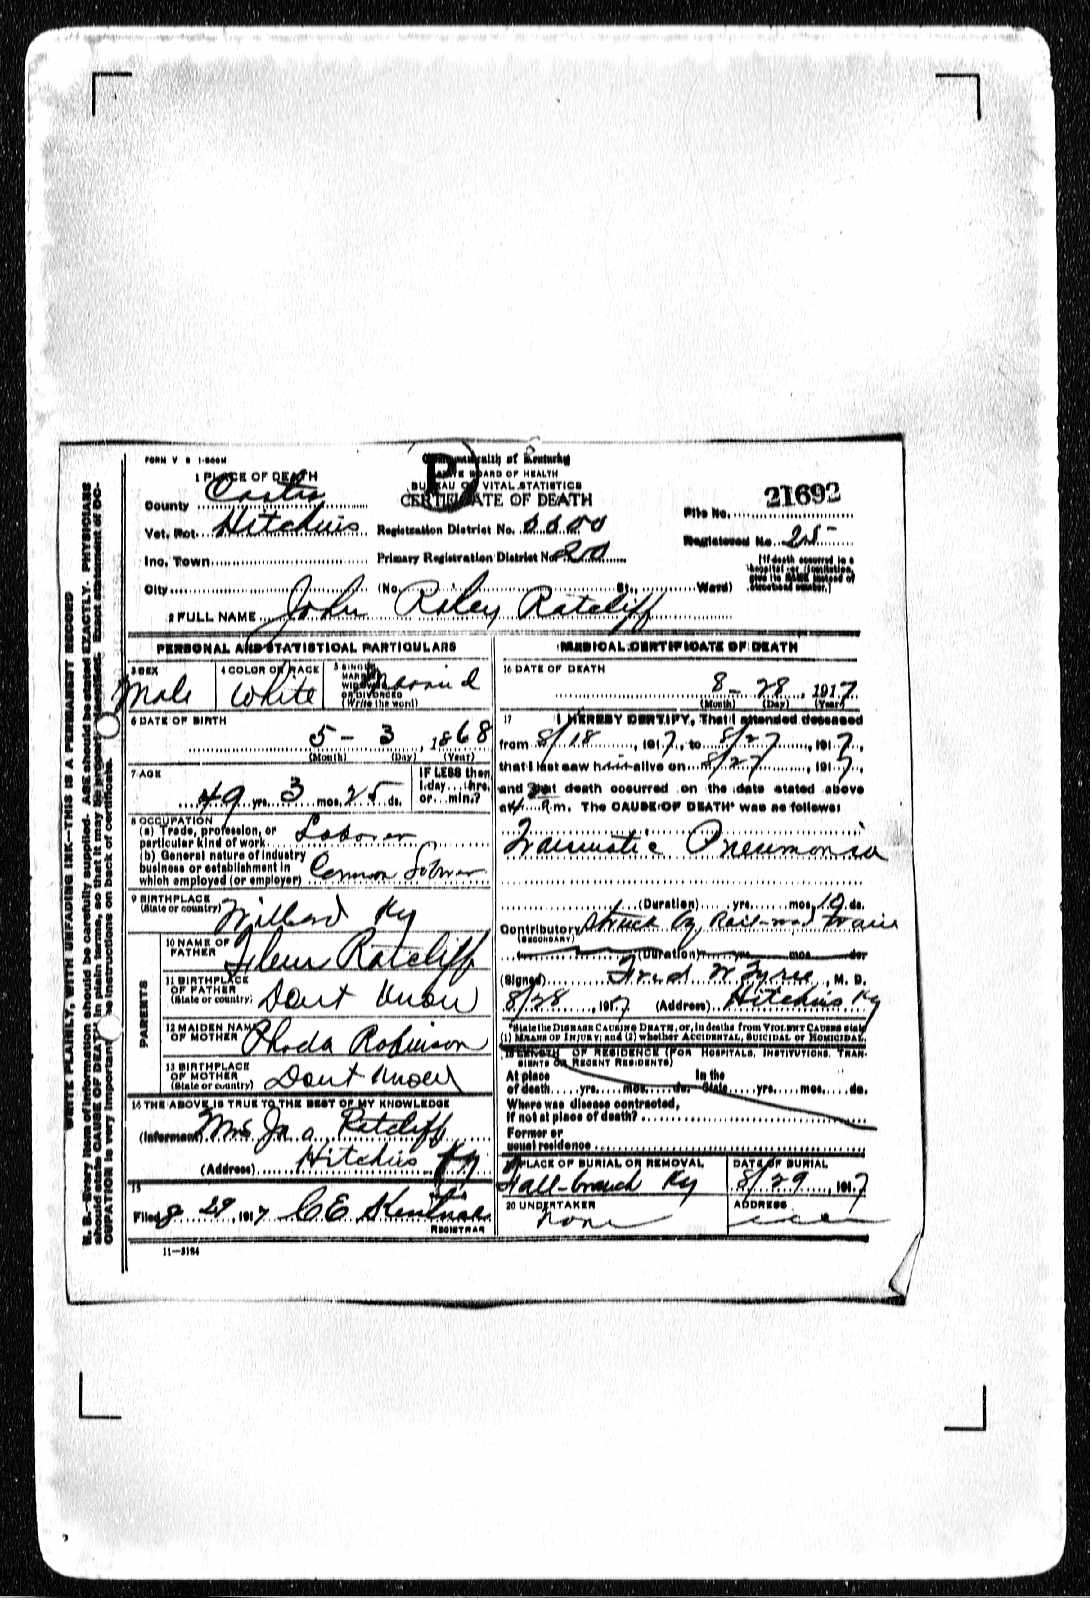 FORM V S 1-500M
Commonwealth of Kentucky
STATE BOARD OF HEALTH
BUREAU OF VITAL STATISTICS
CERTIFICATE OF DEATH
1 PLACE OF DEATH
County Carter
Vot. Pct. Hitchins
Inc. Town
City (No. St., Ward)
Registration District No.
Primary Registration District No. 20
File No. 21692
Registered No. 25
[If death occurred in a hospital or institution, give its NAME instead of street and number.]
2 FULL NAME John Riley Ratcliff
PERSONAL AND STATISTICAL PARTICULARS
3 SEX Male
4 COLOR OR RACE White
5 SINGLE, MARRIED, WIDOWED OR DIVORCED (Write the word) Married
6 DATE OF BIRTH
5 - 3, 1868
(Month) (Day) (Year)
7 AGE
49 yrs. 3 mos. 25 ds.
IF LESS than 1 day... hrs. or... min.?
8 OCCUPATION
(a) Trade, profession, or particular kind of work Laborer
(b) General nature of industry business or establishment in which employed (or employer) Common
9 BIRTHPLACE
(State or country) Willard Ky
PARENTS
10 NAME OF FATHER Ratcliff
11 BIRTHPLACE OF FATHER (State or country) Dont Know
12 MAIDEN NAME OF MOTHER Rhoda Robinson
13 BIRTHPLACE OF MOTHER (State or country) Dont Know
14 THE ABOVE IS TRUE TO THE BEST OF MY KNOWLEDGE
(Informant) Mrs Ratcliff
(Address) Hitchins Ky
15
Filed 8 29, 1917 C E
REGISTRAR
11-3184
MEDICAL CERTIFICATE OF DEATH
16 DATE OF DEATH
8 - 28, 1917
(Month) (Day) (Year)
17 I HEREBY CERTIFY, That I attended deceased
from 8/18, 1917, to 8/27, 1917,
that I last saw him alive on 8/27, 1917,
and that death occurred on the date stated above
at 4 a m. The CAUSE OF DEATH* was as follows:
Traumatic Pneumonia
(Duration) yrs. mos. 10 ds.
Contributory Struck by Rail-road train
(SECONDARY)
(Duration) yrs. mos. ds.
(Signed) Fred W Tyree, M. D.
8/28, 1917 (Address) Hitchins Ky
*State the DISEASE CAUSING DEATH, or, in deaths from VIOLENT CAUSES state
(1) MEANS OF INJURY; and (2) whether ACCIDENTAL, SUICIDAL or HOMICIDAL.
18 LENGTH OF RESIDENCE (FOR HOSPITALS, INSTITUTIONS, TRANSIENTS OR RECENT RESIDENTS)
At place of death yrs. mos. ds. In the State yrs. mos. ds.
Where was disease contracted,
if not at place of death?
Former or
usual residence
19 PLACE OF BURIAL OR REMOVAL
Fall-branch Ky
DATE OF BURIAL
8/29, 1917
20 UNDERTAKER
none
ADDRESS
WRITE PLAINLY, WITH UNFADING INK—THIS IS A PERMANENT RECORD
N. B.—Every item of information should be carefully supplied. AGE should be stated EXACTLY. PHYSICIANS
should state CAUSE OF DEATH in plain terms, so that it may be properly classified. Exact statement of OCCUPATION is very important. See instructions on back of certificate.